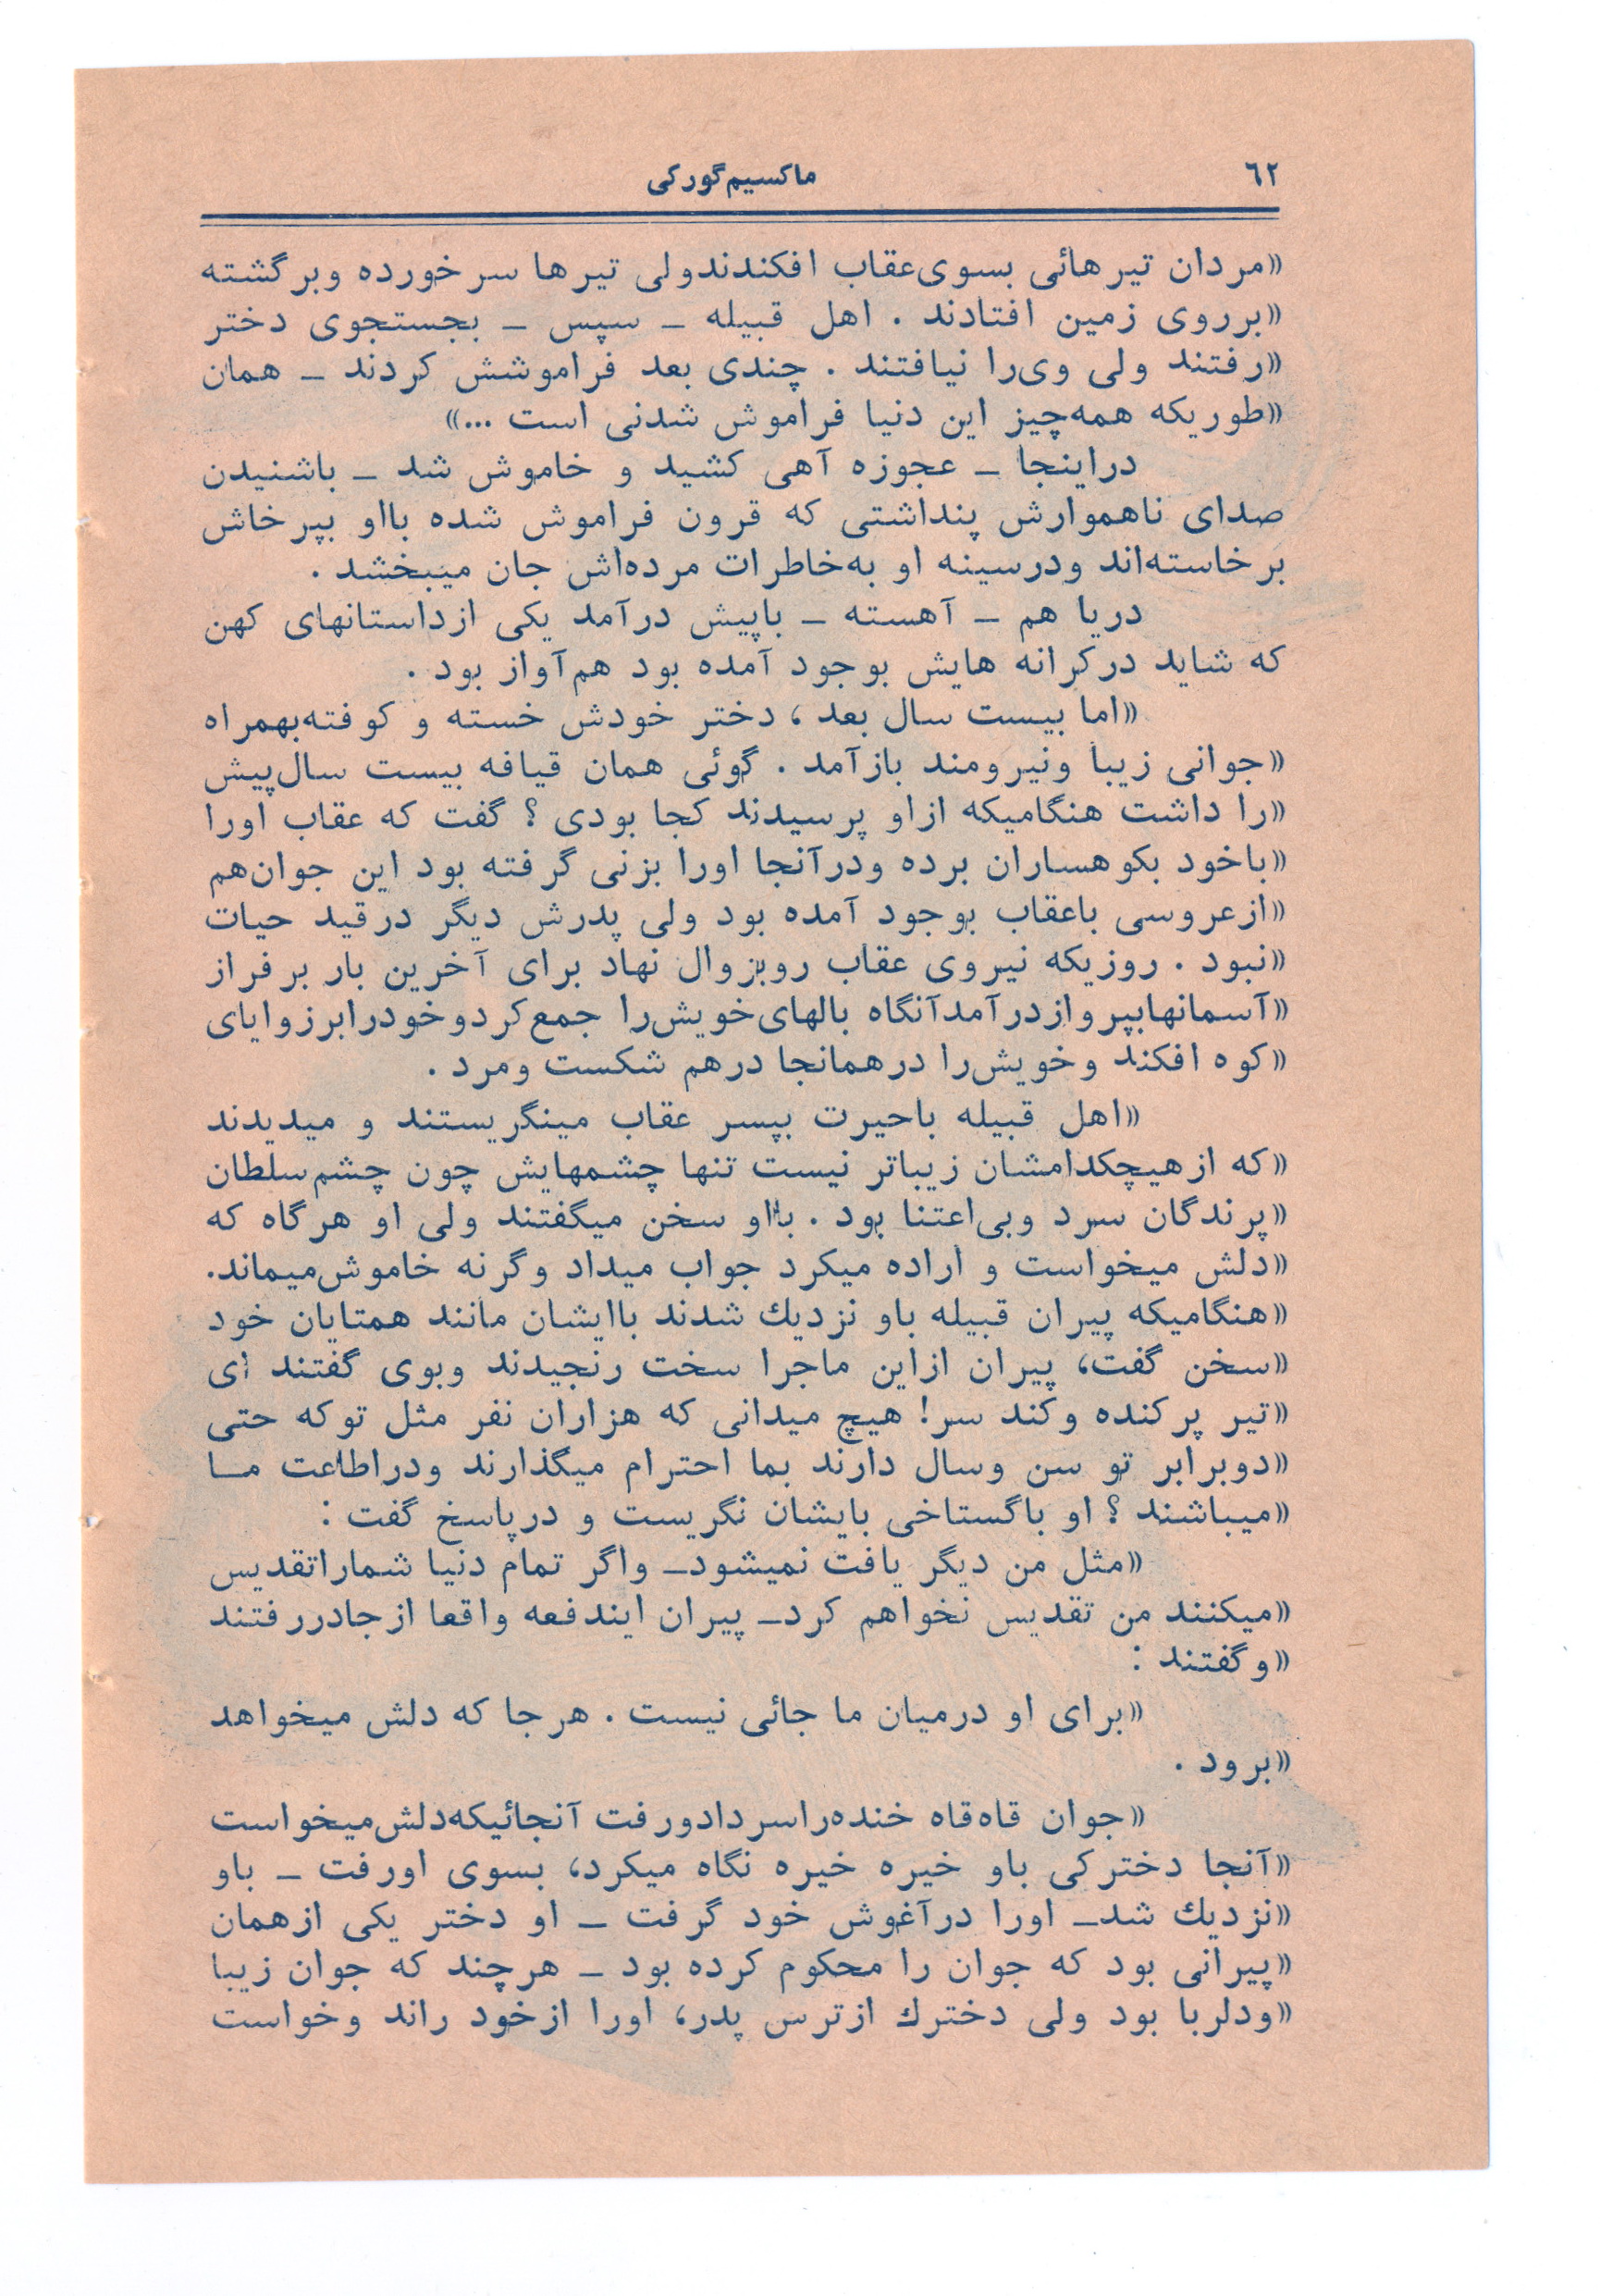 ٦٢
ماکسیم گورکی
«مردان تیرهائی بسوی‌عقاب افکندندولی تیرها سرخورده وبرگشته
«برروی زمین افتادند . اهل قبیله ـ سپس ـ بجستجوی دختر
«رفتند ولی وی‌را نیافتند . چندی بعد فراموشش کردند ـ همان
«طوریکه همه‌چیز این دنیا فراموش شدنی است ...»
دراینجا ـ عجوزه آهی کشید و خاموش شد ـ باشنیدن
صدای ناهموارش پنداشتی که قرون فراموش شده بااو بپرخاش
برخاسته‌اند ودرسینه او به‌خاطرات مرده‌اش جان میبخشد .
دریا هم ـ آهسته ـ باپیش درآمد یکی ازداستانهای کهن
که شاید درکرانه هایش بوجود آمده بود هم‌آواز بود .
«اما بیست سال بعد ، دختر خودش خسته و کوفته‌بهمراه
«جوانی زیبا ونیرومند بازآمد . گوئی همان قیافه بیست سال‌پیش
«را داشت هنگامیکه ازاو پرسیدند کجا بودی ؟ گفت که عقاب اورا
«باخود بکوهساران برده ودرآنجا اورا بزنی گرفته بود این جوان‌هم
«ازعروسی باعقاب بوجود آمده بود ولی پدرش دیگر درقید حیات
«نبود . روزیکه نیروی عقاب روبزوال نهاد برای آخرین بار برفراز
«آسمانهابپروازدرآمدآنگاه بالهای‌خویش‌را جمع‌کردوخودرابرزوایای
«کوه افکند وخویش‌را درهمانجا درهم شکست ومرد .
«اهل قبیله باحیرت بپسر عقاب مینگریستند و میدیدند
«که ازهیچکدامشان زیباتر نیست تنها چشمهایش چون چشم‌سلطان
«پرندگان سرد وبی‌اعتنا بود . بااو سخن میگفتند ولی او هرگاه که
«دلش میخواست و اراده میکرد جواب میداد وگرنه خاموش‌میماند.
«هنگامیکه پیران قبیله باو نزدیك شدند باایشان مانند همتایان خود
«سخن گفت، پیران ازاین ماجرا سخت رنجیدند وبوی گفتند ای
«تیر پرکنده وکند سر! هیچ میدانی که هزاران نفر مثل توکه حتی
«دوبرابر تو سن وسال دارند بما احترام میگذارند ودراطاعت مـا
«میباشند ؟ او باگستاخی بایشان نگریست و درپاسخ گفت :
«مثل من دیگر یافت نمیشودـ واگر تمام دنیا شماراتقدیس
«میکنند من تقدیس نخواهم کردـ پیران ایندفعه واقعا ازجادررفتند
«وگفتند :
«برای او درمیان ما جائی نیست . هرجا که دلش میخواهد
«برود .
«جوان قاه‌قاه خنده‌راسردادورفت آنجائیکه‌دلش‌میخواست
«آنجا دخترکی باو خیره خیره نگاه میکرد، بسوی اورفت ـ باو
«نزدیك شدـ اورا درآغوش خود گرفت ـ او دختر یکی ازهمان
«پیرانی بود که جوان را محکوم کرده بود ـ هرچند که جوان زیبا
«ودلربا بود ولی دخترك ازترس پدر، اورا ازخود راند وخواست